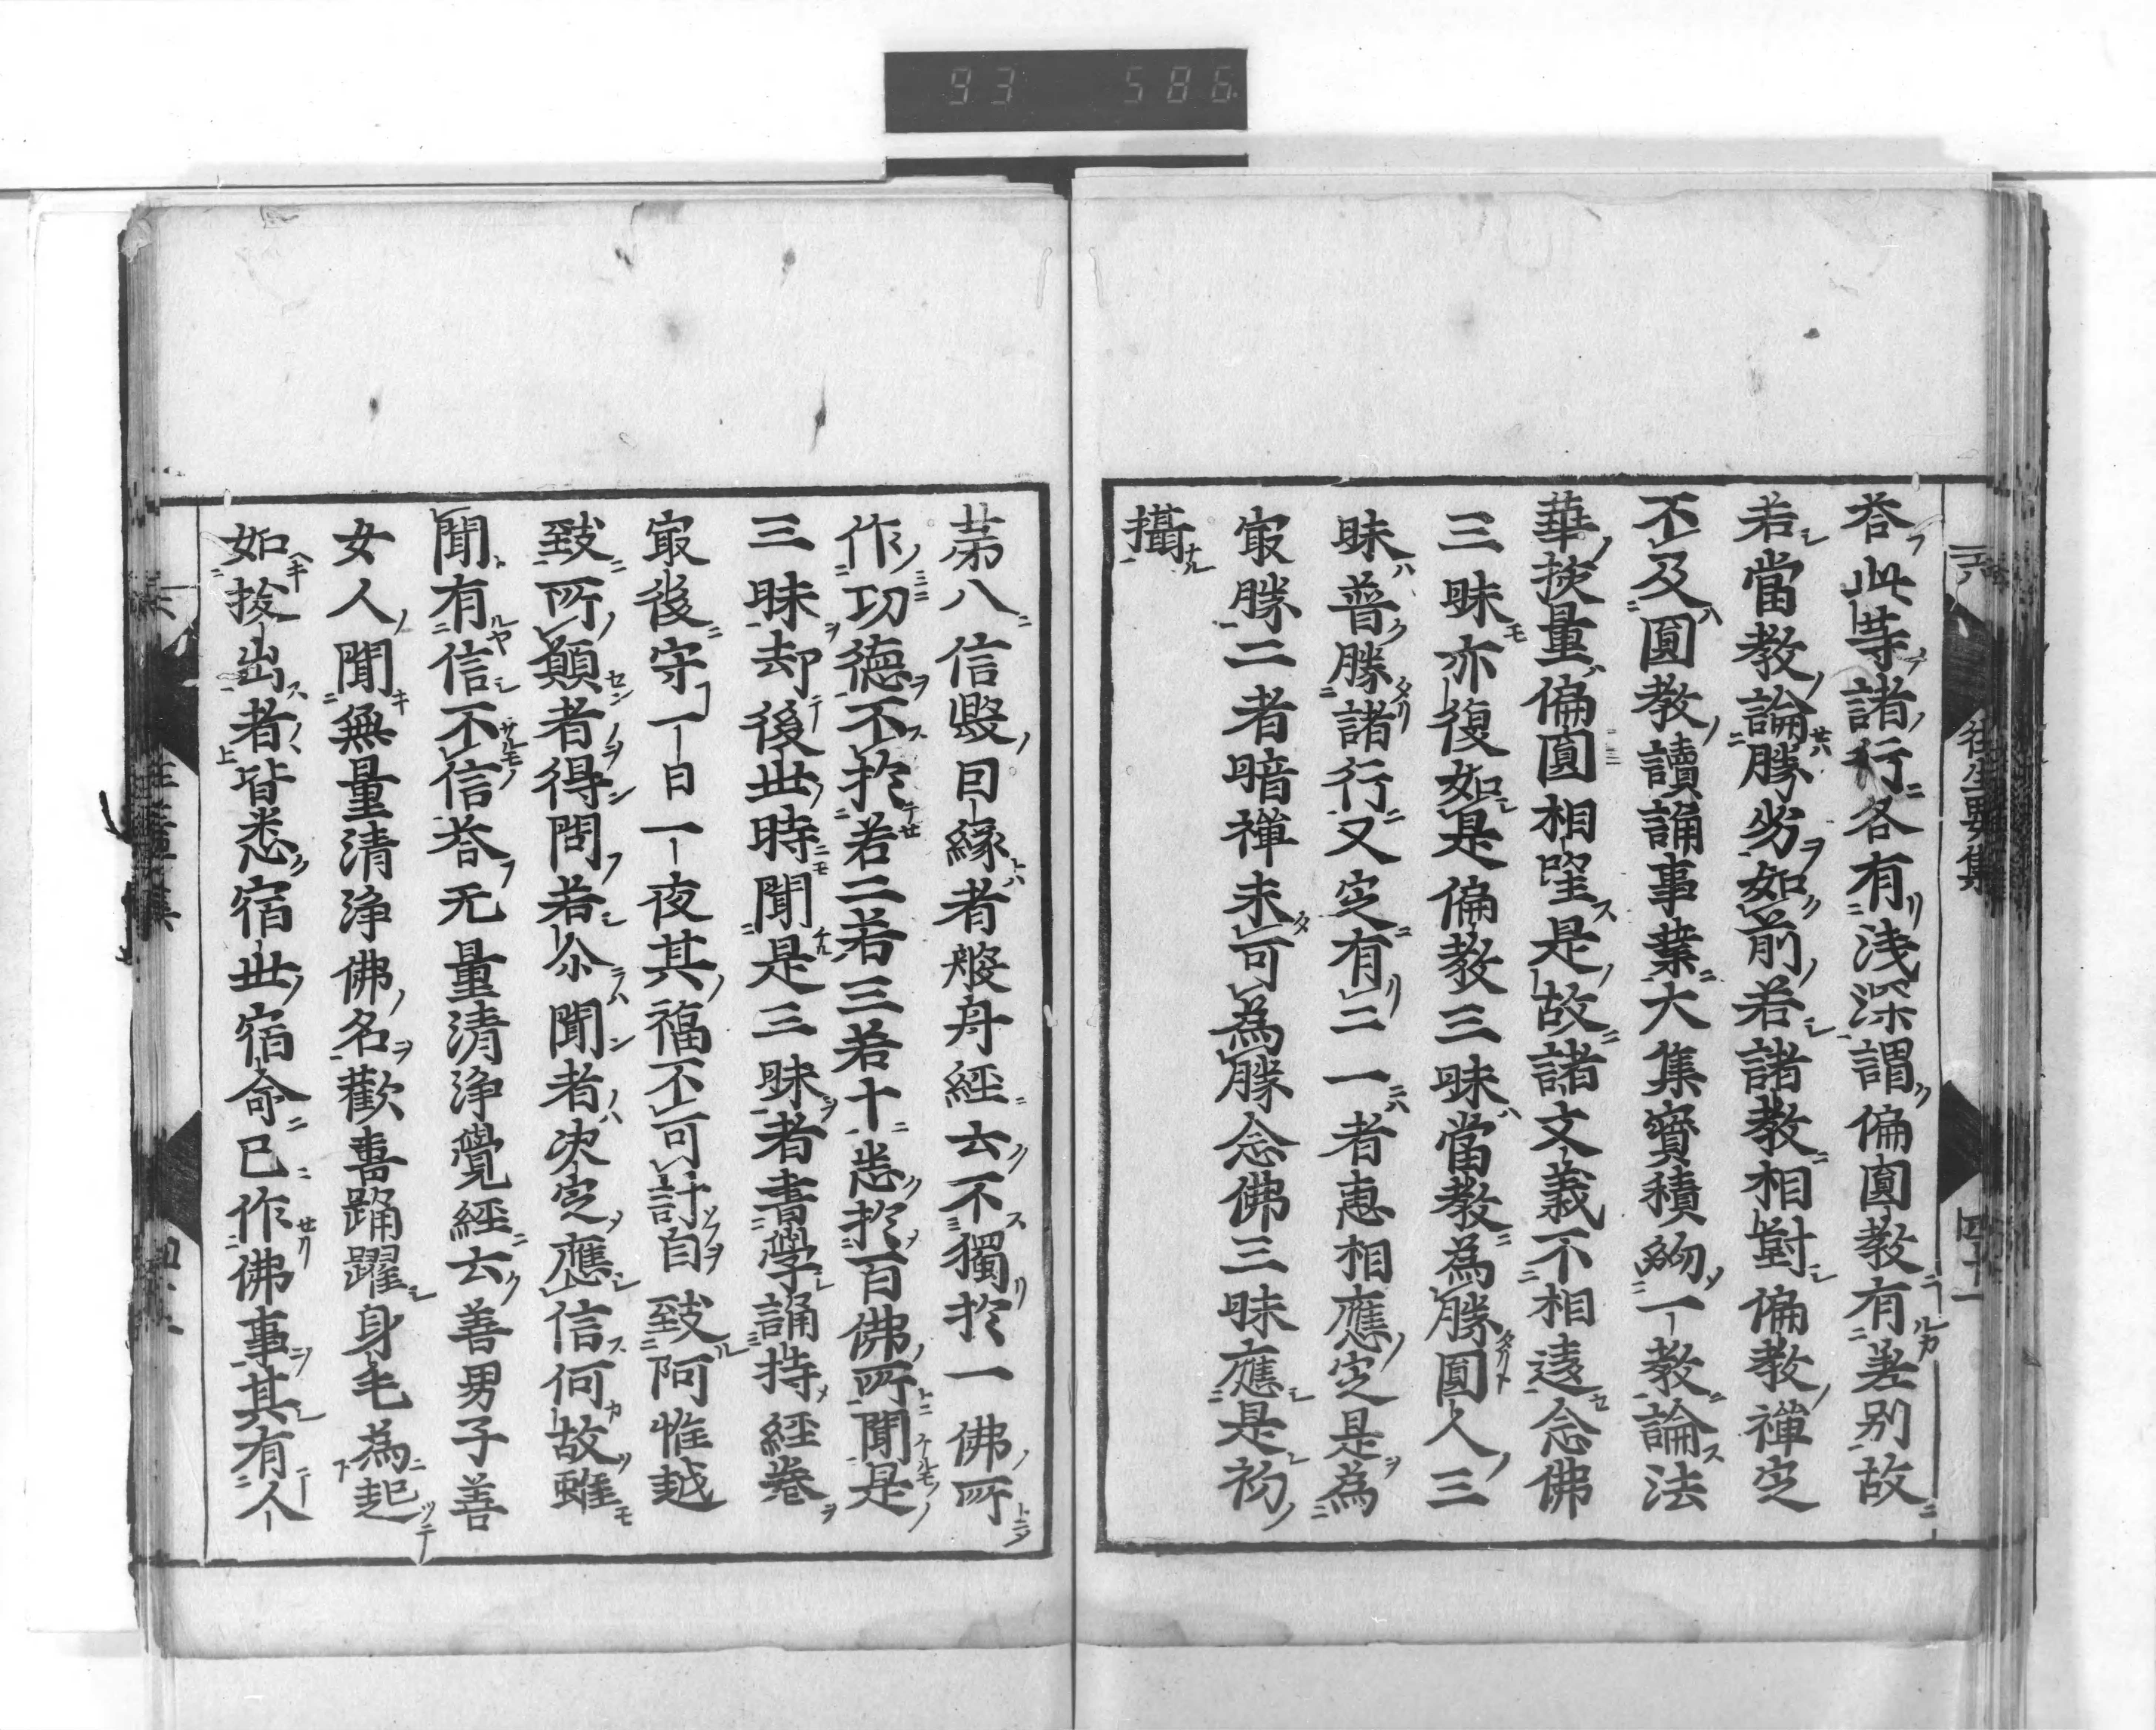 93 586
往生要集
四十一
荅此等諸行各有淺深謂偏圓教有差別故
若當教論勝劣如前若諸教相對偏教禪定
不及圓教讀誦事業大集寶積約一教論法
華挍量偏圓相望是故諸文義不相違念佛
三昧亦復如是偏教三昧當教為勝圓人三
昧普勝諸行又定有二一者恵相應定是為
㝡勝二者暗禪未可為勝念佛三昧應是初
攝
苐八信毀因緣者般舟經云不獨扵一佛所
作功德不扵若二若三若十悉扵百佛所聞是
三昧却後世時聞是三昧者書學誦持經卷
㝡後守一日一夜其福不可計自致阿惟越
致所願者得問若尒聞者决定應信何故雖
聞有信不信荅无量清浄覺經云善男子善
女人聞無量清浄佛名歡喜踊躍身毛為起
如拔出者皆悉宿世宿命已作佛事其有人